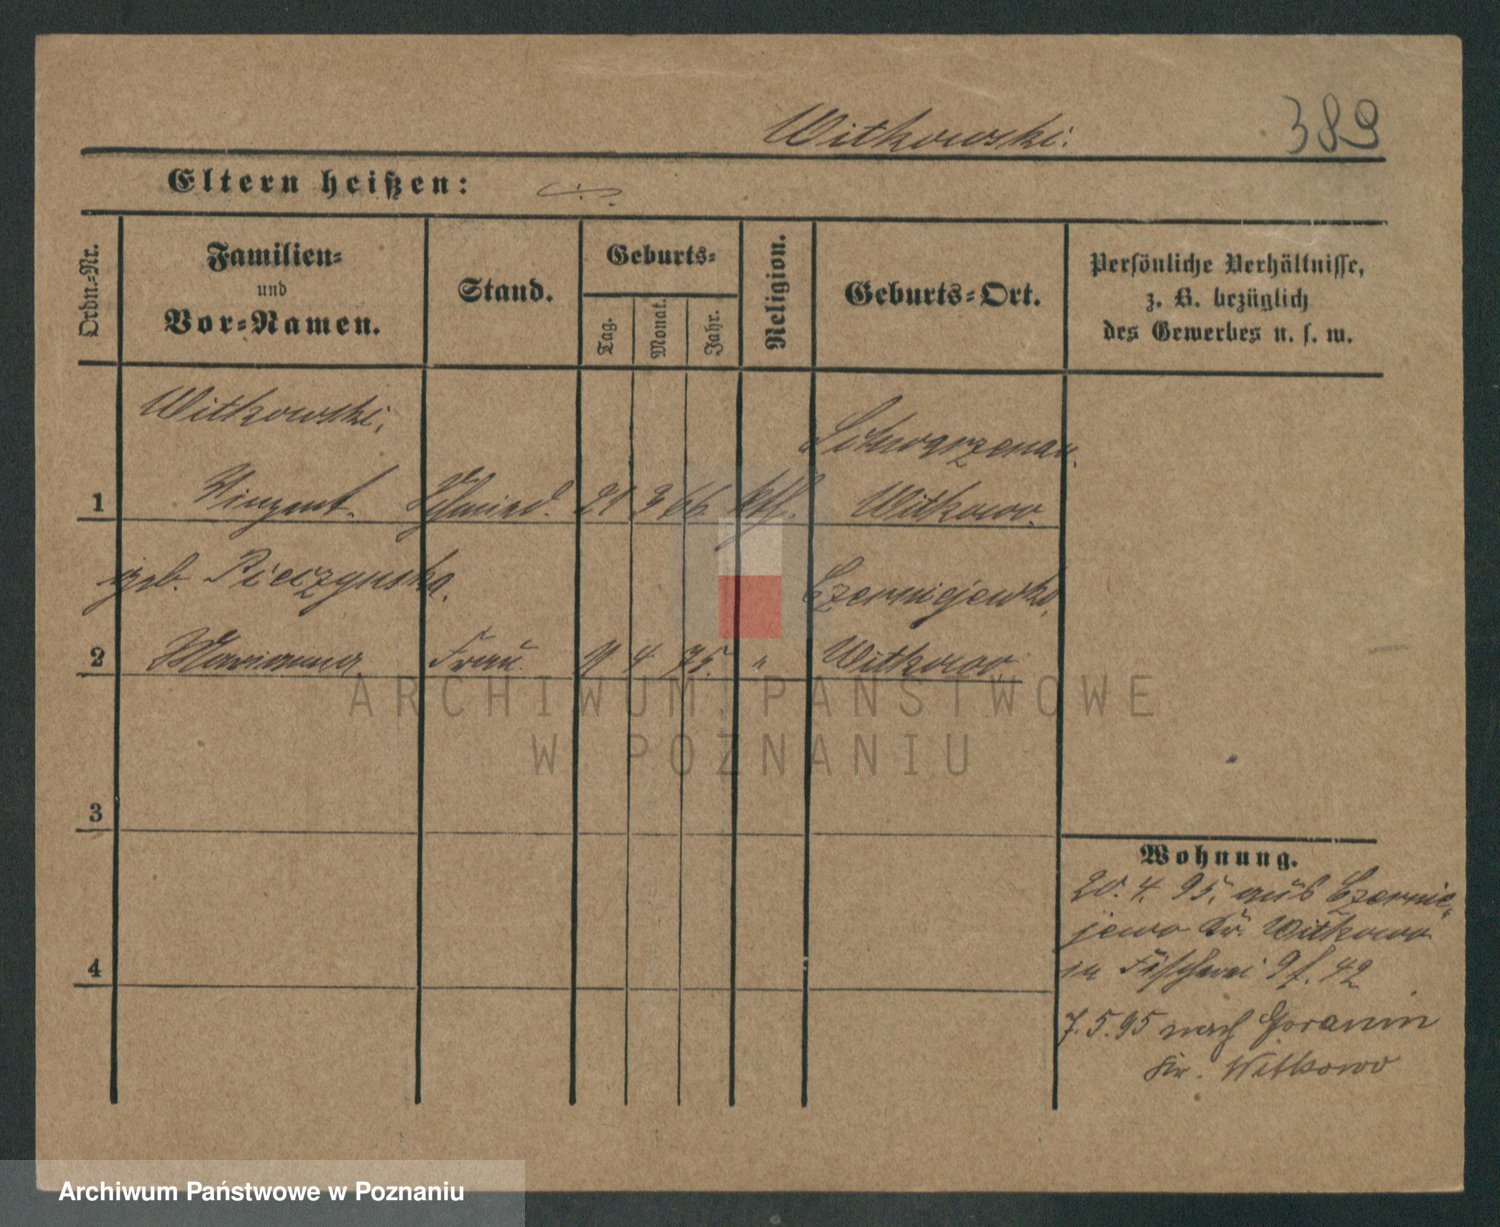 Witkowski.
389
Eltern heißen:
Ordn.-Nr.
Familien-
und
Vor-Namen.
Stand.
Geburts-
Tag.
Monat.
Jahr.
Religion.
Geburts-Ort.
Persönliche Verhältnisse,
z. B. bezüglich
des Gewerbes u. s. w.
Witkowski,
1 Vinzent. Schmied. 21 3 66. kth. Witkowo.
geb. Pieczynska.
Czerniejewko,
2 Marianna Frau 9 4 75. " Witkowo.
ARCHIWUM PAŃSTWOWE
W POZNANIU
3
4
Wohnung.
20. 4. 95. aus Czernie-
jewo Kr. Witkowo
in Fischerei 42
7. 5. 95 nach Goranin
Kr. Witkowo
Archiwum Państwowe w Poznaniu